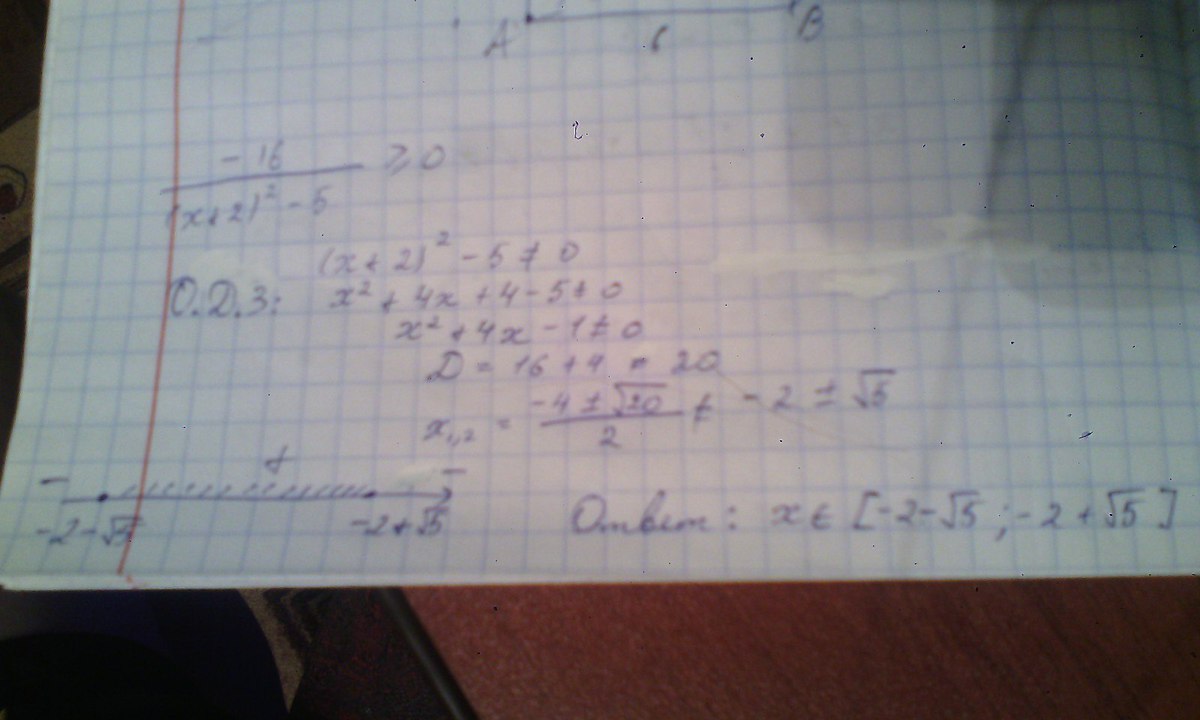 A 6 B
-16 / (x+2)² - 5 ≥ 0
О.Д.З: (x+2)² - 5 ≠ 0
x² + 4x + 4 - 5 ≠ 0
x² + 4x - 1 ≠ 0
D = 16 + 4 = 20
x₁,₂ = (-4 ± √20) / 2 ≠ -2 ± √5
- + -
-2-√5 -2+√5
Ответ: x ∈ [-2-√5; -2+√5]